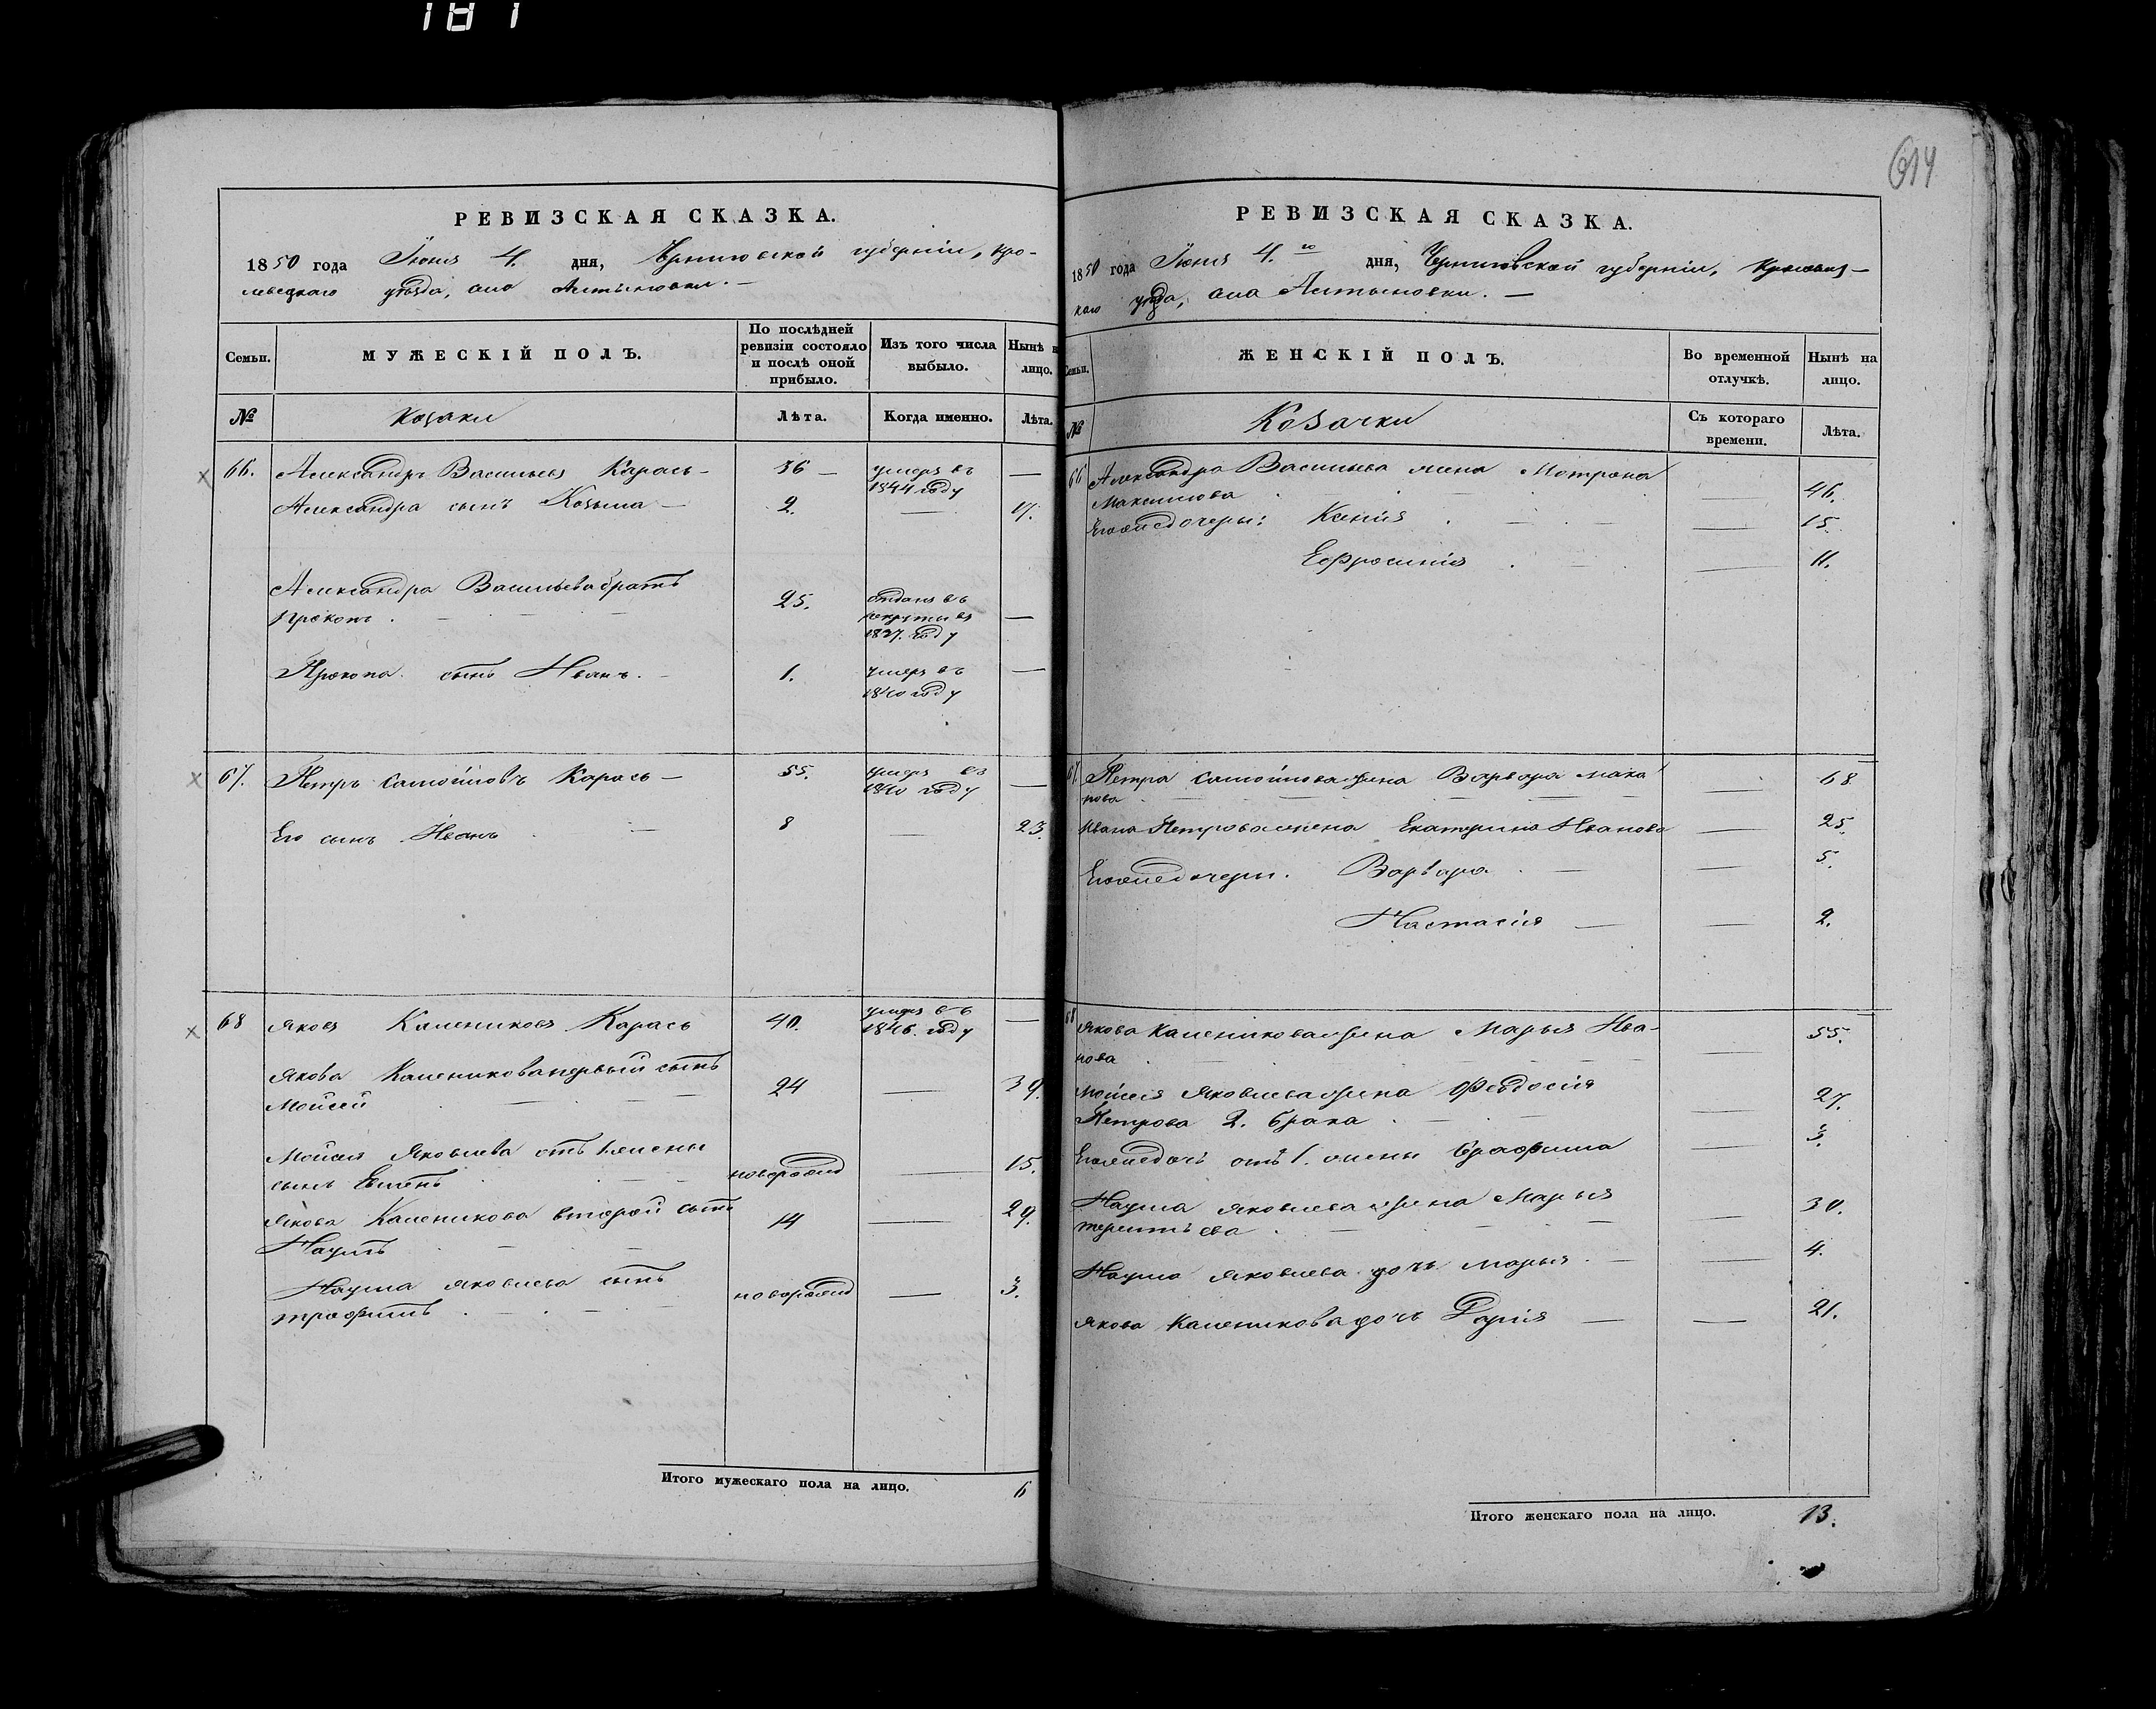 181
614
РЕВИЗСКАЯ СКАЗКА.
1850 года Июня 4. дня, Черниговской губерніи, Кро-
левецкаго уѣзда, села Алтыновки. —
Семьи.
МУЖЕСКІЙ ПОЛЪ.
По послѣдней ревизіи состояло и послѣ оной прибыло.
Изъ того числа выбыло.
Нынѣ на лицо.
№
Козаки
Лѣта.
Когда именно.
Лѣта.
66. Александръ Васильевъ Карась — 36 — умеръ въ 1844 году —
Александра сынъ Козьма — 2. — 17.
Александра Васильева братъ
Прокопъ . — 25. отданъ въ рекруты въ 1837. году —
Прокопа сынъ Иванъ. — 1. умеръ въ 1840 году —
67. Петръ Самойловъ Карась — 55. умеръ въ 1840 году —
Его сынъ Иванъ — 8 — 23.
68 Яковъ Калениковъ Карась 40. умеръ въ 1846. году —
Якова Каленикова первый сынъ
Мойсей — 24 — 39.
Мойсея Яковлева отъ 1 жены
сынъ — новорожд — 15.
Якова Каленикова второй сынъ
Наумъ — 14 — 29.
Наума Яковлева сынъ
Трофимъ — новорожд — 3.
Итого мужескаго пола на лицо. 6
РЕВИЗСКАЯ СКАЗКА.
1850 года Июня 4.го дня, Черниговской губерніи, Кролевец-
каго уѣзда, села Алтыновки. —
Семьи.
ЖЕНСКІЙ ПОЛЪ.
Во временной отлучкѣ.
Нынѣ на лицо.
№
Козачки
Съ котораго времени.
Лѣта.
66 Александра Васильева жена Мотрона
Максимова — 46.
Егоже дочери: Ксенія . — 15.
Ефросинія . — 11.
67. Петра Самойлова жена Варвара
нова — 68
Ивана Петрова жена Екатерина Иванова — 25.
Егоже дочери. Варвара . — 5.
Настасія — 2.
68 Якова Каленикова жена Марья Ива-
нова — 55.
Мойсея Яковлева жена Феодосія
Петрова 2. брака — 27.
Егоже дочь отъ 1. жены Серафима — 3.
Наума Яковлева жена Марья
Терентьева — 30.
Наума Яковлева дочь Марья. — 4.
Якова Каленикова дочь Дарія — 21.
Итого женскаго пола на лицо. 13.